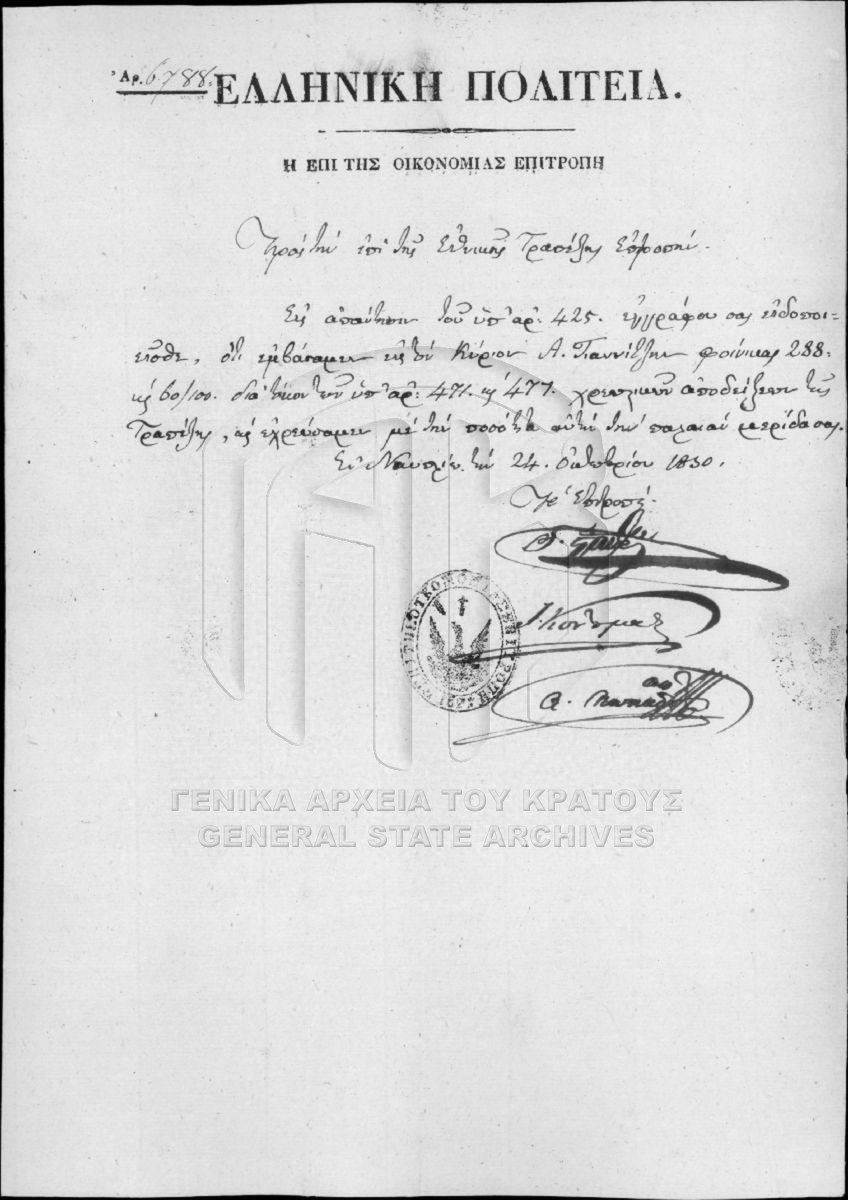 Ἀρ. 6788.
ΕΛΛΗΝΙΚΗ ΠΟΛΙΤΕΙΑ.
Η ΕΠΙ ΤΗΣ ΟΙΚΟΝΟΜΙΑΣ ΕΠΙΤΡΟΠΗ
Πρὸς τὴν ἐπὶ τῆς Ἐθνικῆς Τραπέζης Ἐπιτροπήν.
Εἰς ἀπάντησιν τοῦ ὑπ' ἀρ: 425. ἐγγράφου σας εἰδοποι-
εῖσθε, ὅτι ἐμβάσαμεν εἰς τὸν Κύριον Α. Γιαννίτζην φοίνικας 288:
κ 60/100. διὰ τόκον τῶν ὑπ' ἀρ: 471. κ 477. χρεωστικῶν ἀποδείξεων τῆς
Τραπέζης, κ ἐχρεώσαμεν μὲ τὴν ποσότητα αὐτὴν τὴν παλαιὰν μερίδα σας.
Ἐν Ναυπλίῳ τὴν 24. ὀκτωβρίου 1830.
Ἡ Ἐπιτροπή.
Γ. Σταύρου
Ι. Κοντουμας
Α. Παπαδο
ΓΕΝΙΚΑ ΑΡΧΕΙΑ ΤΟΥ ΚΡΑΤΟΥΣ
GENERAL STATE ARCHIVES